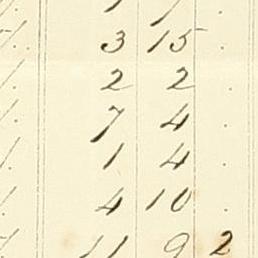 3 15
2 2 .
7 4 .
1 4 .
4 10 .
11 9 2